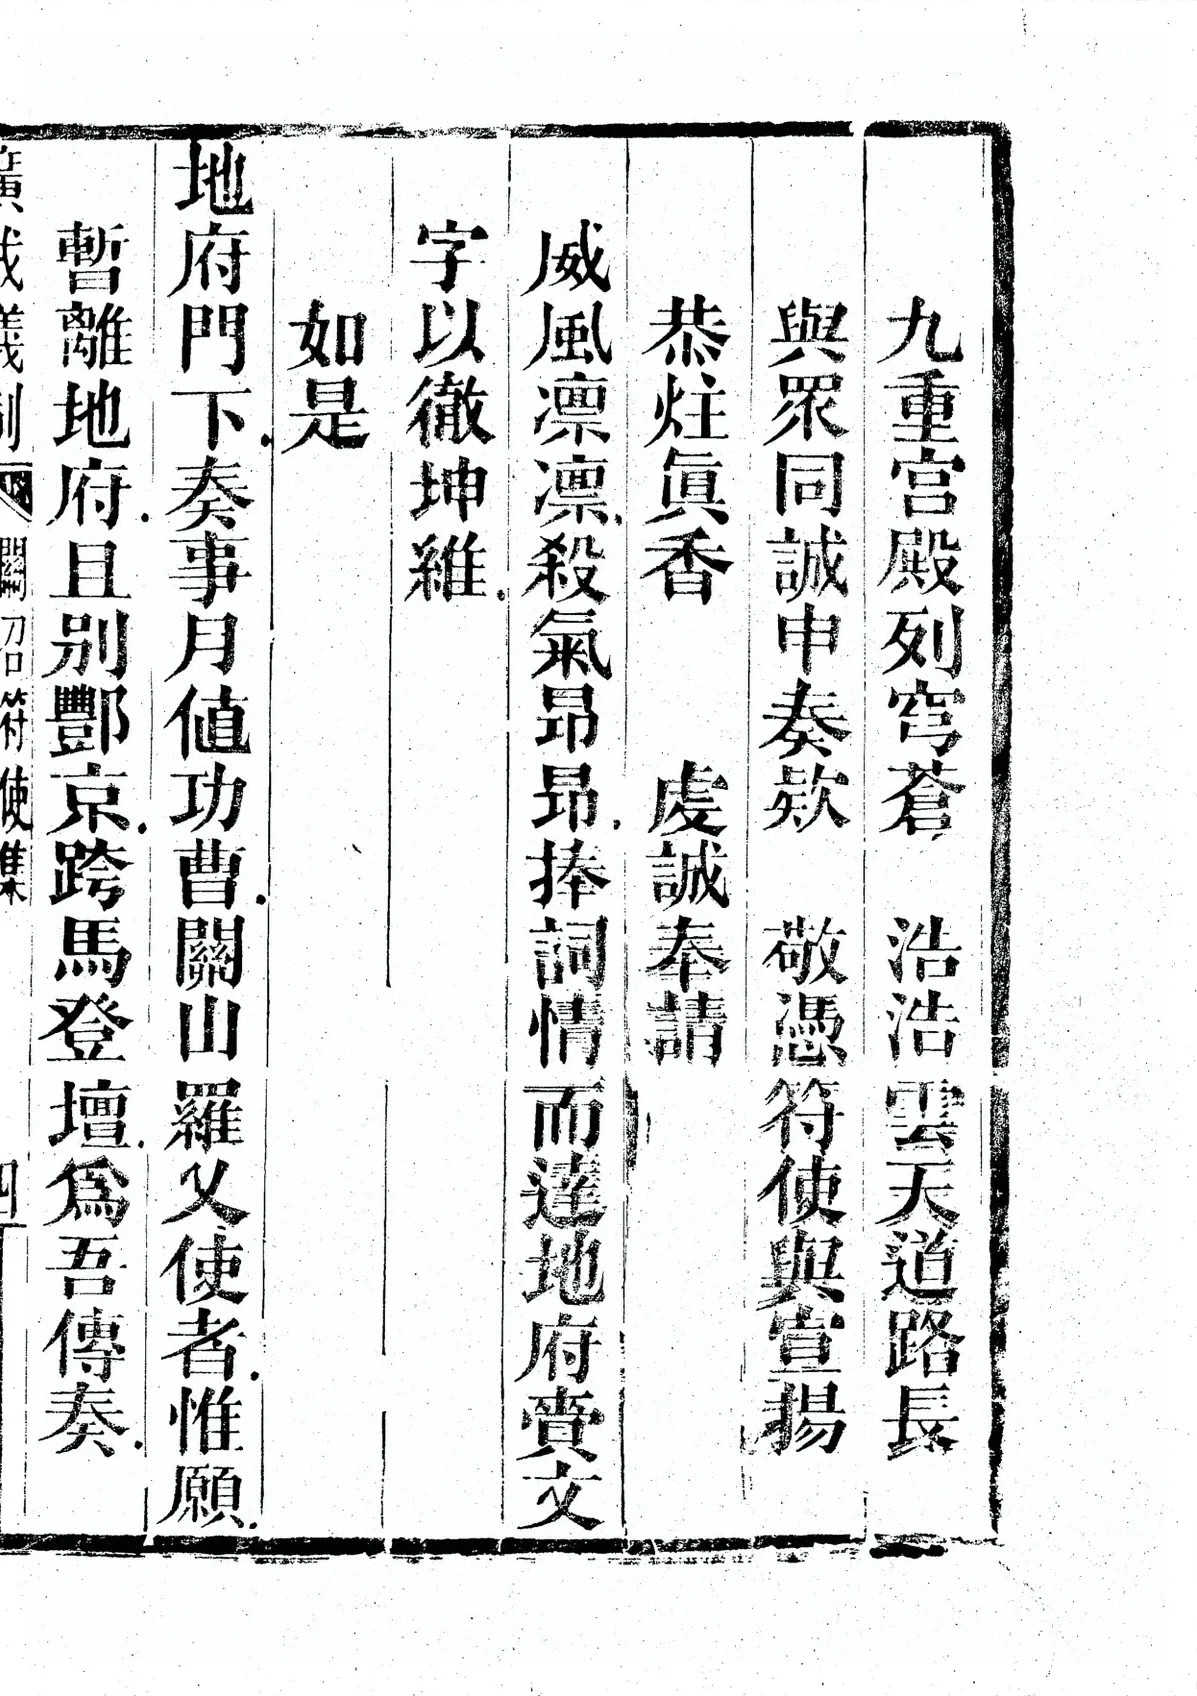 九重宫殿列穹蒼　浩浩雲天道路長
與眾同誠申奏欵　敬憑符使與宣揚
恭炷眞香　虔誠奉請
威風凛凛殺氣昂昂捧詞情而達地府賫文
字以徹坤維
如是
地府門下奏事月値功曹關山羅乂使者惟願
暫離地府且别酆京跨馬登壇爲吾傳奏
符使集
四